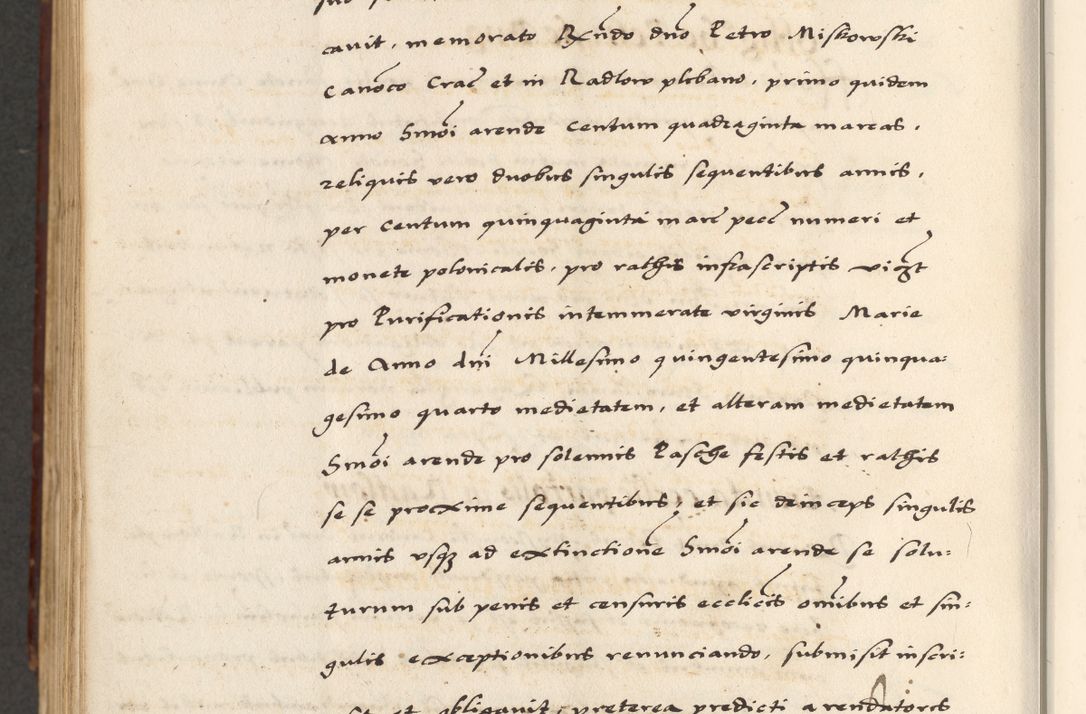 cavit, memorato Rx̃ndo dño Petro Miskowski
Cañoco Crac̃ et in Radlow plebano, primo quidem
anno Hmõi arende Centum quadraginta marcas,
reliquis vero duobus singulis sequentibus annis,
per Centum quinquaginta marc̃ pecc̃ numeri et
monete polonicalis, pro rathis infrascriptis viczt
pro Purificationis intemmerate virginis Marie
de Anno dñi Millesimo quingentesimo quinqua:
gesimo quarto medietatem, et alteram medietatem
Hmõi arende pro solennis Pasche festis et rathis
se se proxime sequentibus; et sic deinceps singulis
annis usqꝫ ad extinctionẽ Hmõi arende se solu:
turum sub penis et censuris eccliĉis om̃ibus et sin:
gulis exceptionibus renunciando, submisit inscri:
et obligavit, preterea predicti arendatores